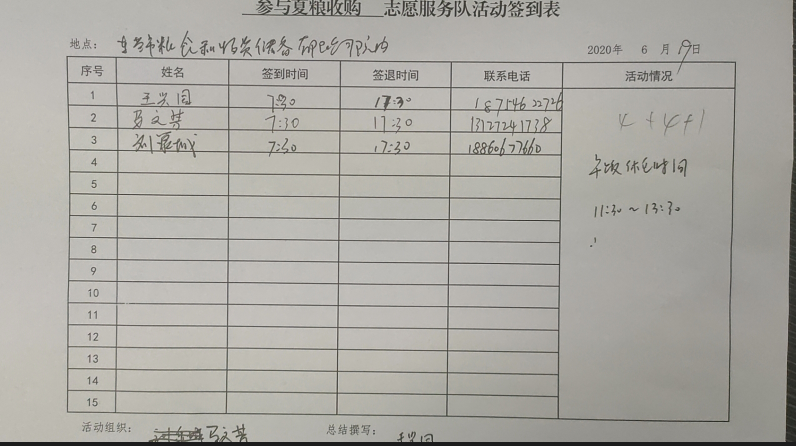 参与夏粮收购 志愿服务队活动签到表
地点: 2020年 6 月 19日
序号 姓名 签到时间 签退时间 联系电话 活动情况
1 王兴国 7:30 17:30 18754622726
2 马文英 7:30 17:30 13127241738 4+4+1
3 7:30 17:30 18860677660
4 午饭休息时间
5
6 11:30~13:30
7
8
9
10
11
12
13
14
15
活动组织: 马文英 总结撰写: 王兴国